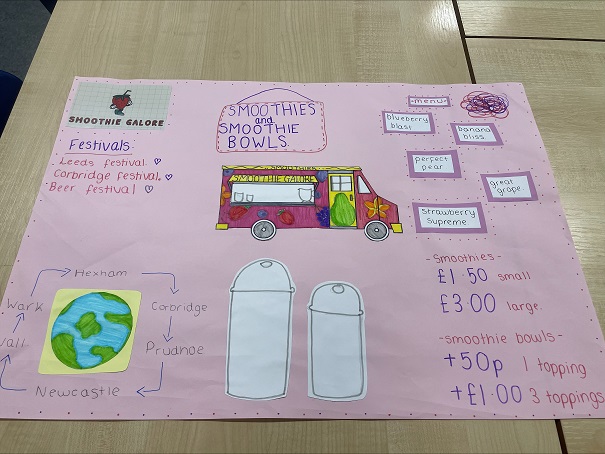 SMOOTHIE GALORE
Festivals:
Leeds festival.
Corbridge festival.
Beer festival
SMOOTHIES
and
SMOOTHIE
BOWLS.
SMOOTHIE GALORE
-menu-
blueberry
blast
banana
bliss
perfect
pear
great
grape
Strawberry
Supreme
-Smoothies-
£1.50 small
£3.00 large.
-smoothie bowls-
+50p 1 topping
+£1.00 3 toppings
Hexham
Corbridge
Prudhoe
Newcastle
Wall
Wark